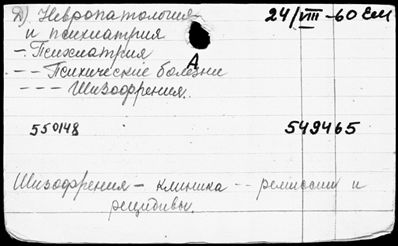 Д) Невропатология 24/VIII-60 Ем
и психиатрия
- Психиатрия
- - - Психические болезни
А
- - - Шизофрения.
550148 549465
Шизофрения - клиника - - ремиссии и
рецидивы.